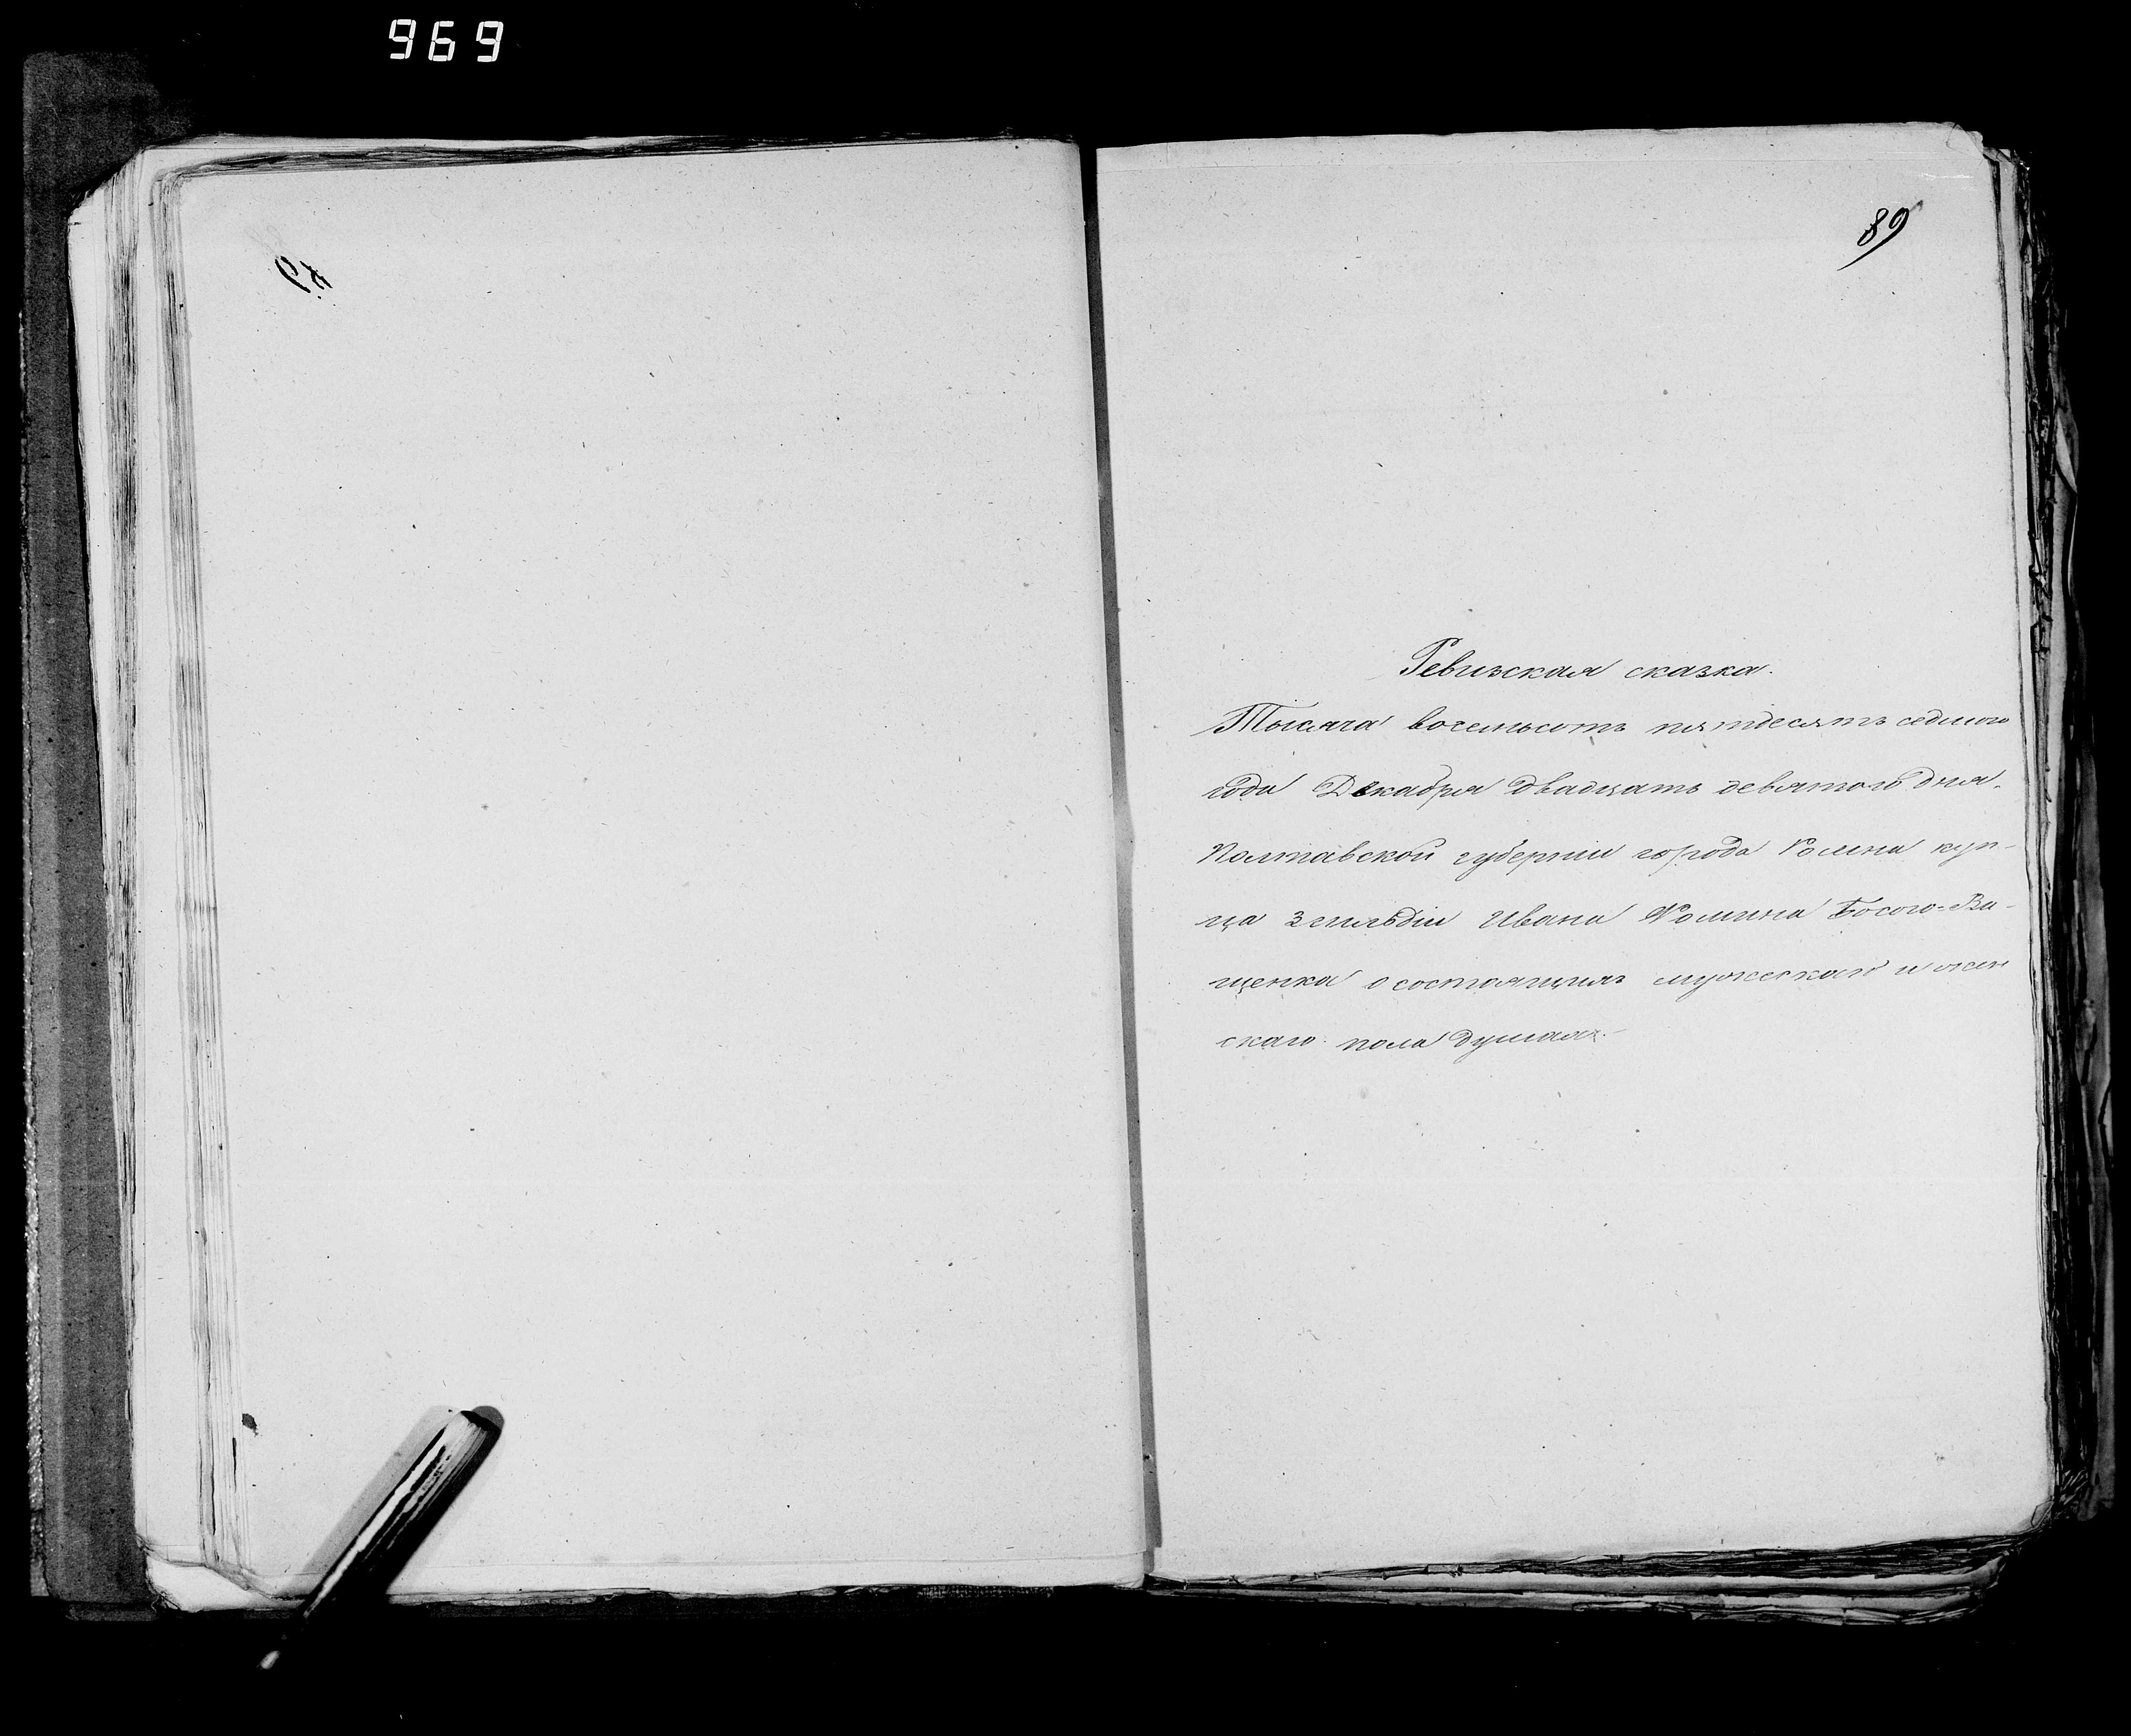 969
89
Ревизская сказка.
Тысяча восемьсотъ пятдесятъ седмого
года Декабря двадцать девятого дня.
Полтавской губерніи города Ромна куп-
ца 3 гильдіи Ивана Фомина Босого=Ва-
щенка о состоящихъ мужескаго и жен
скаго пола душахъ.